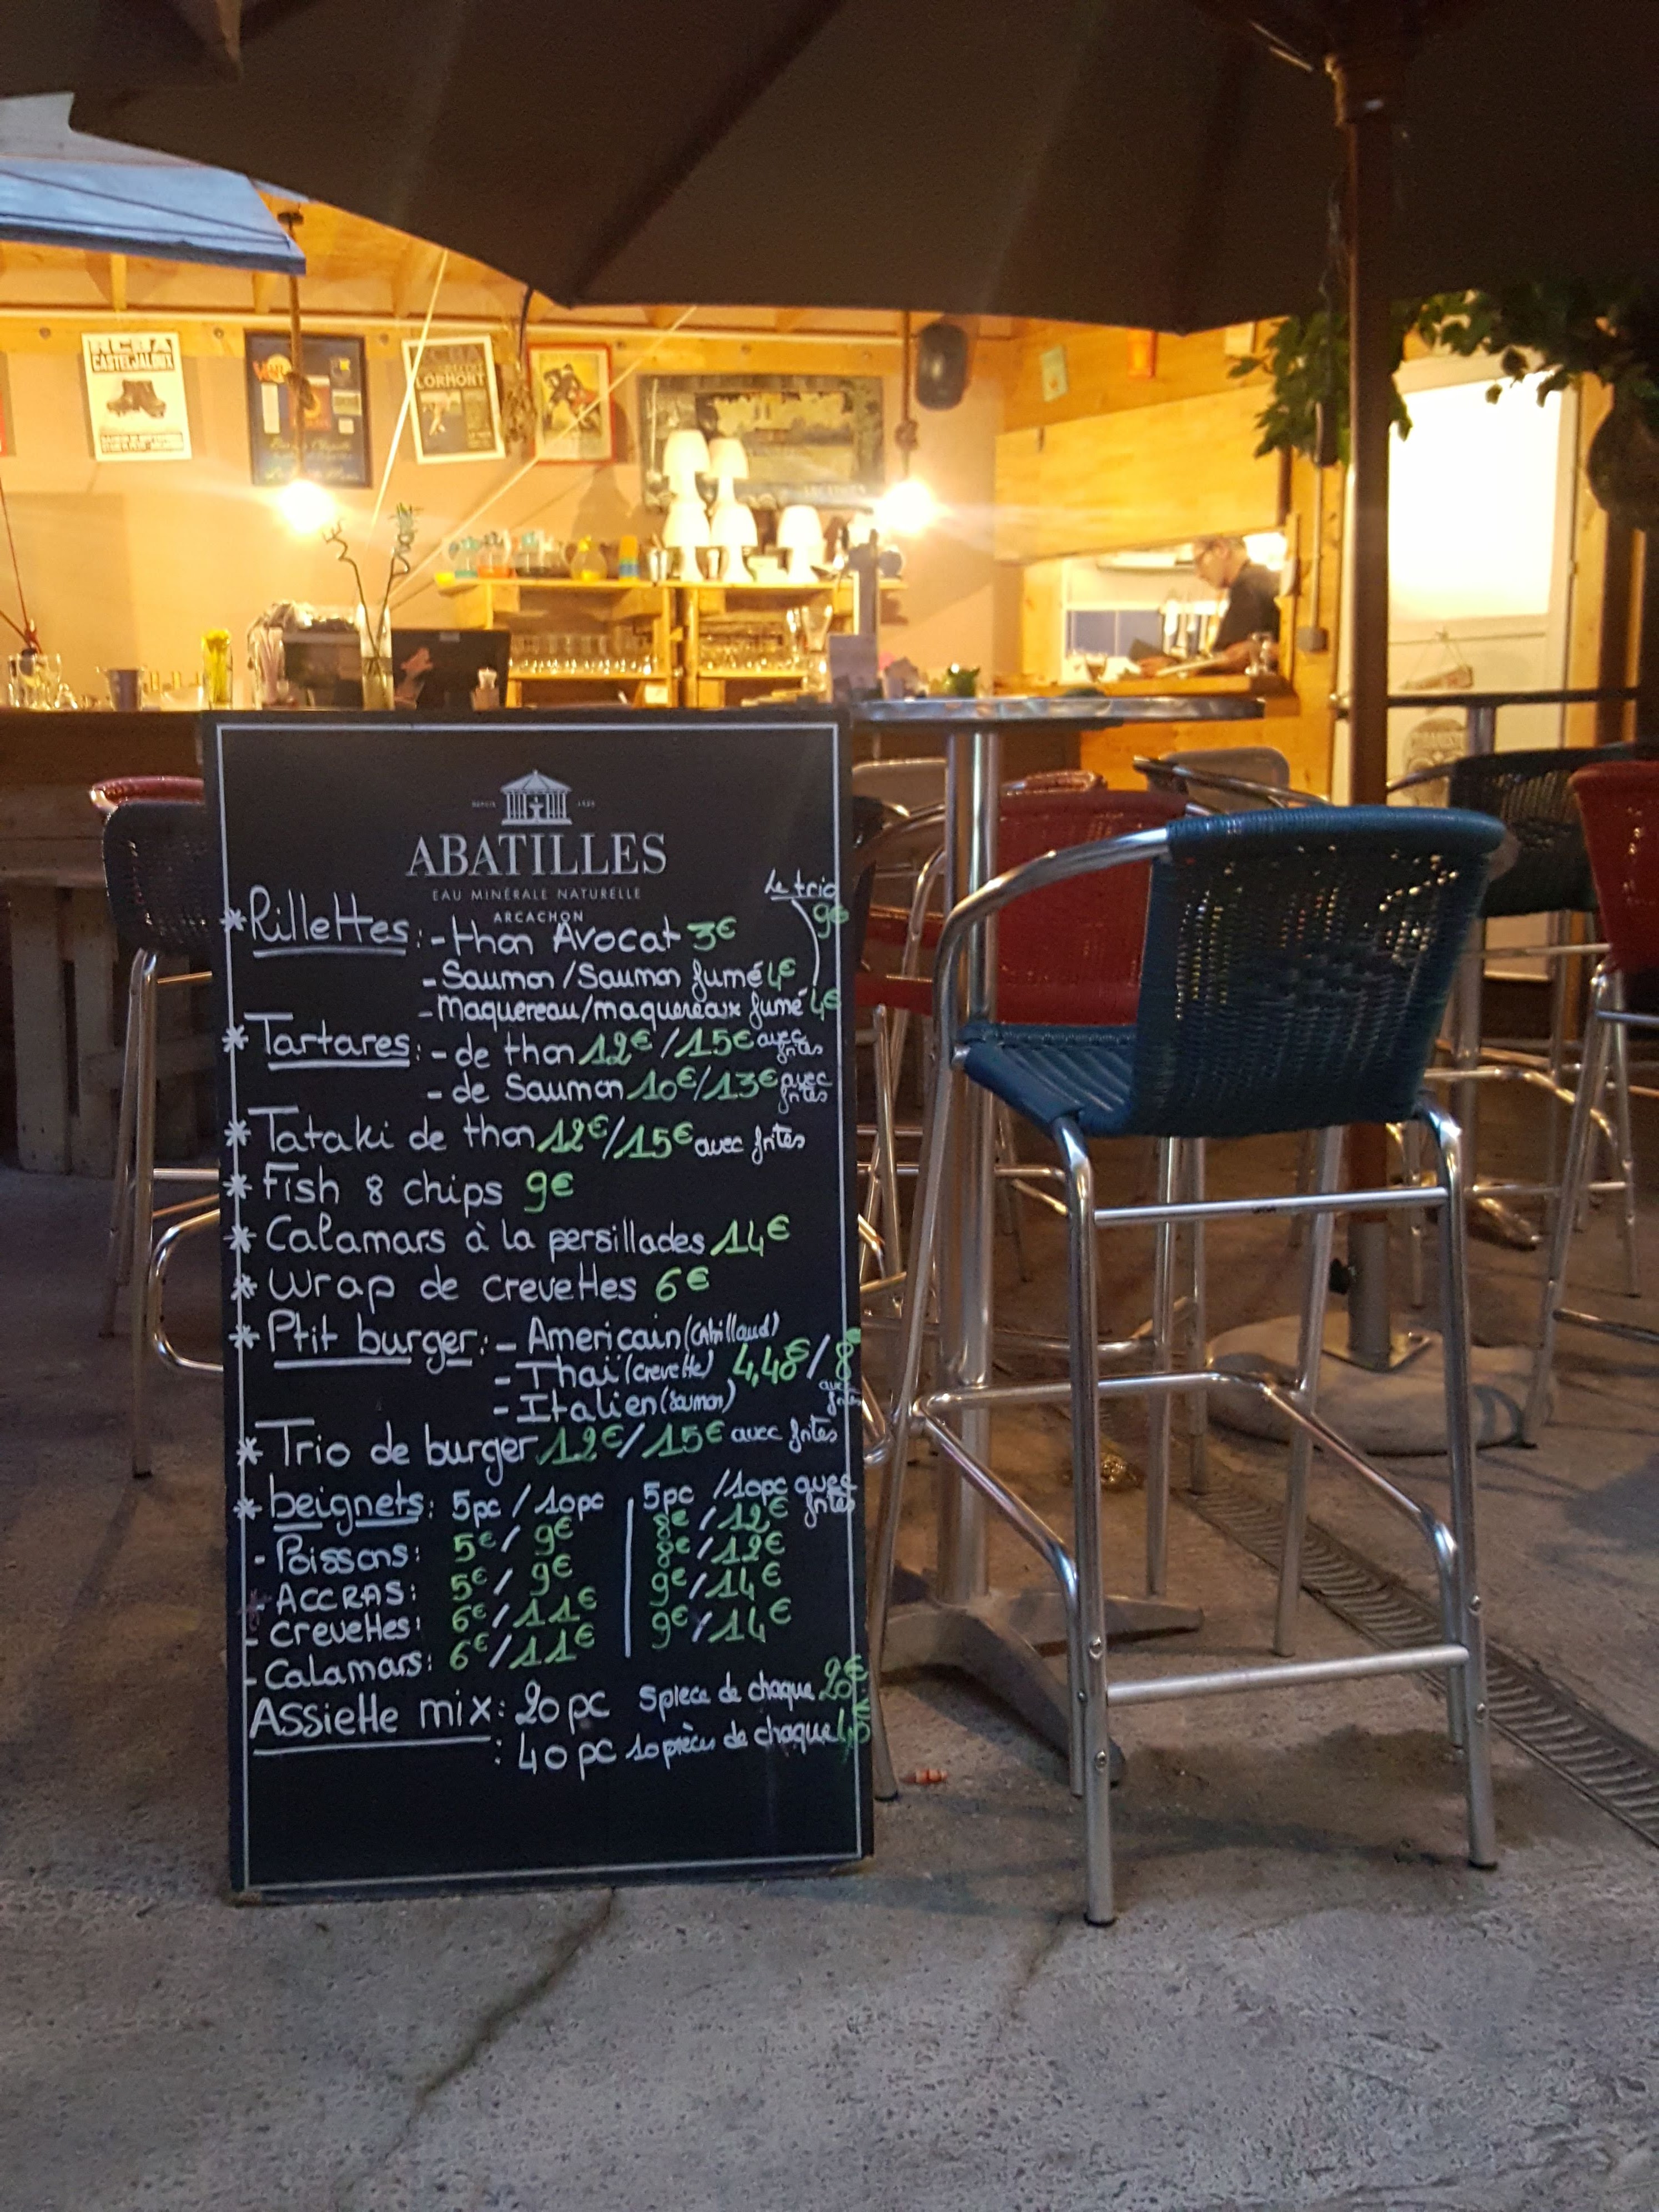 RCBA
CASTELJALOUX
LORMONT
DEPUIS 1925
ABATILLES
EAU MINÉRALE NATURELLE
ARCACHON
Le trio
9€
* Rillettes: - thon Avocat 3€
- Saumon/Saumon fumé 4€
- Maquereau/maquereaux fumé 4€
* Tartares: - de thon 12€/15€ avec frites
- de Saumon 10€/13€ avec frites
* Tataki de thon 12€/15€ avec frites
* Fish & chips 9€
* Calamars à la persillades 14€
* Wrap de crevettes 6€
* Ptit burger: - Americain (Cabillaud)
- Thaï (crevette) 4,40€/8€
- Italien (Saumon) avec frites
* Trio de burger 12€/15€ avec frites
* beignets: 5pc/10pc | 5pc/10pc avec frites
- Poissons: 5€/9€ 8€/12€
- ACCRAS: 5€/9€ 8€/12€
- crevettes: 6€/11€ 9€/14€
- Calamars: 6€/11€ 9€/14€
Assiette mix: 20pc 5piece de chaque 20€
: 40pc 10pièces de chaque